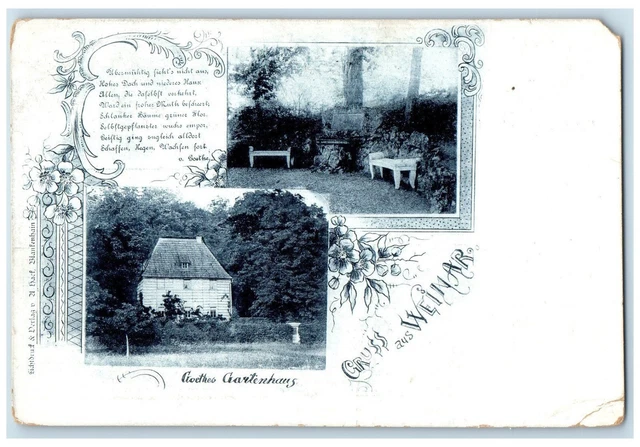 Übermüthig sieht's nicht aus,
Hohes Dach und niederes Haus;
Allen, die daselbst verkehrt,
Ward ein froher Muth bescheert,
Schlanker Bäume grüner Flor,
Selbstgepflanzter wuchs empor,
Geistig ging zugleich alldort
Schaffen, Hegen, Wachsen fort.
v. Goethe.
Lichtdruck & Verlag v. A Hack, Blankenhain i/Th
Goethes Gartenhaus
GRUSS
aus WEIMAR